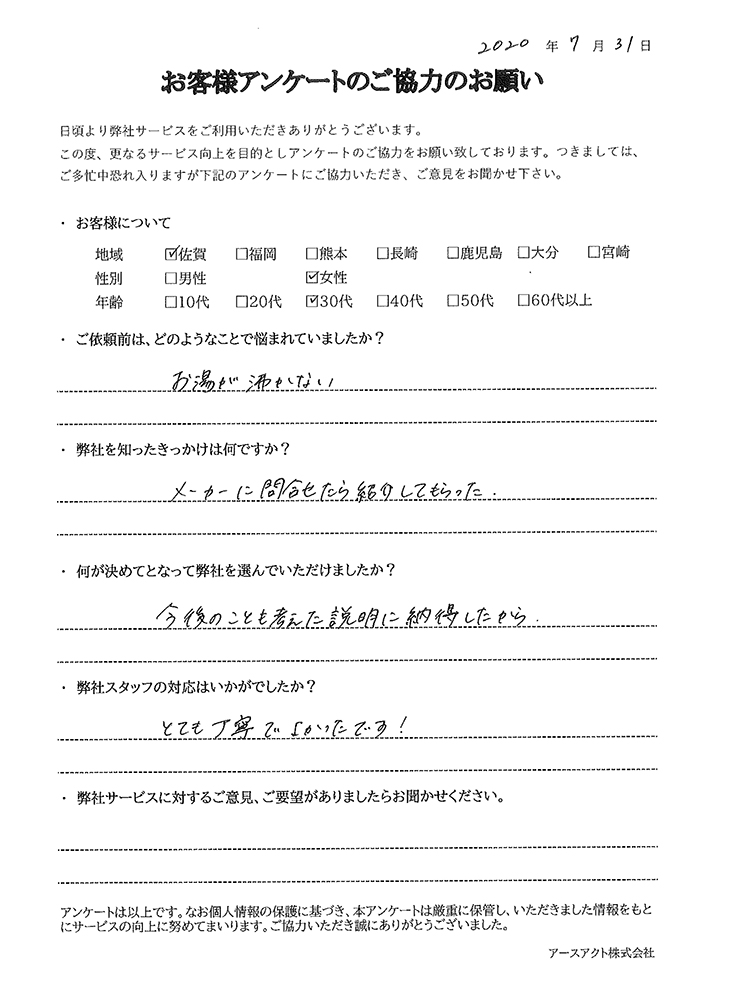 2020 年 7 月 31 日
お客様アンケートのご協力のお願い
日頃より弊社サービスをご利用いただきありがとうございます。
この度、更なるサービス向上を目的としアンケートのご協力をお願い致しております。つきましては、
ご多忙中恐れ入りますが下記のアンケートにご協力いただき、ご意見をお聞かせ下さい。
・ お客様について
地域 ☑佐賀 □福岡 □熊本 □長崎 □鹿児島 □大分 □宮崎
性別 □男性 ☑女性
年齢 □10代 □20代 ☑30代 □40代 □50代 □60代以上
・ ご依頼前は、どのようなことで悩まれていましたか？
お湯が沸かない
・ 弊社を知ったきっかけは何ですか？
メーカーに問合せたら紹介してもらった.
・ 何が決めてとなって弊社を選んでいただけましたか？
今後のことも考えた説明に納得したから.
・ 弊社スタッフの対応はいかがでしたか？
とても丁寧でよかったです！
・ 弊社サービスに対するご意見、ご要望がありましたらお聞かせください。
アンケートは以上です。なお個人情報の保護に基づき、本アンケートは厳重に保管し、いただきました情報をもと
にサービスの向上に努めてまいります。ご協力いただき誠にありがとうございました。
アースアクト株式会社